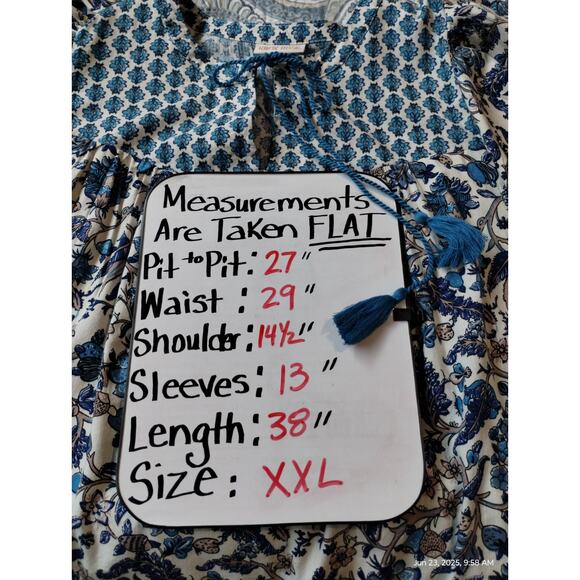 Measurements
Are Taken FLAT
Pit to Pit: 27"
Waist: 29"
Shoulder: 14½"
Sleeves: 13"
Length: 38"
Size: XXL
Jun 23, 2025, 9:58 AM